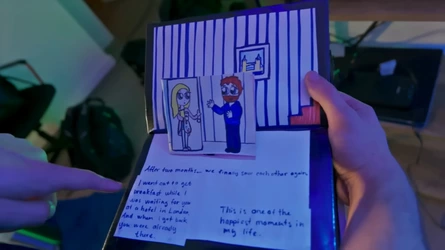 After two months... we finally saw each other again.
I went out to get
breakfast while I
was waiting for you
at a hotel in London
And when I got back
you were already
there.
This is one of the
happiest moments in
my life.